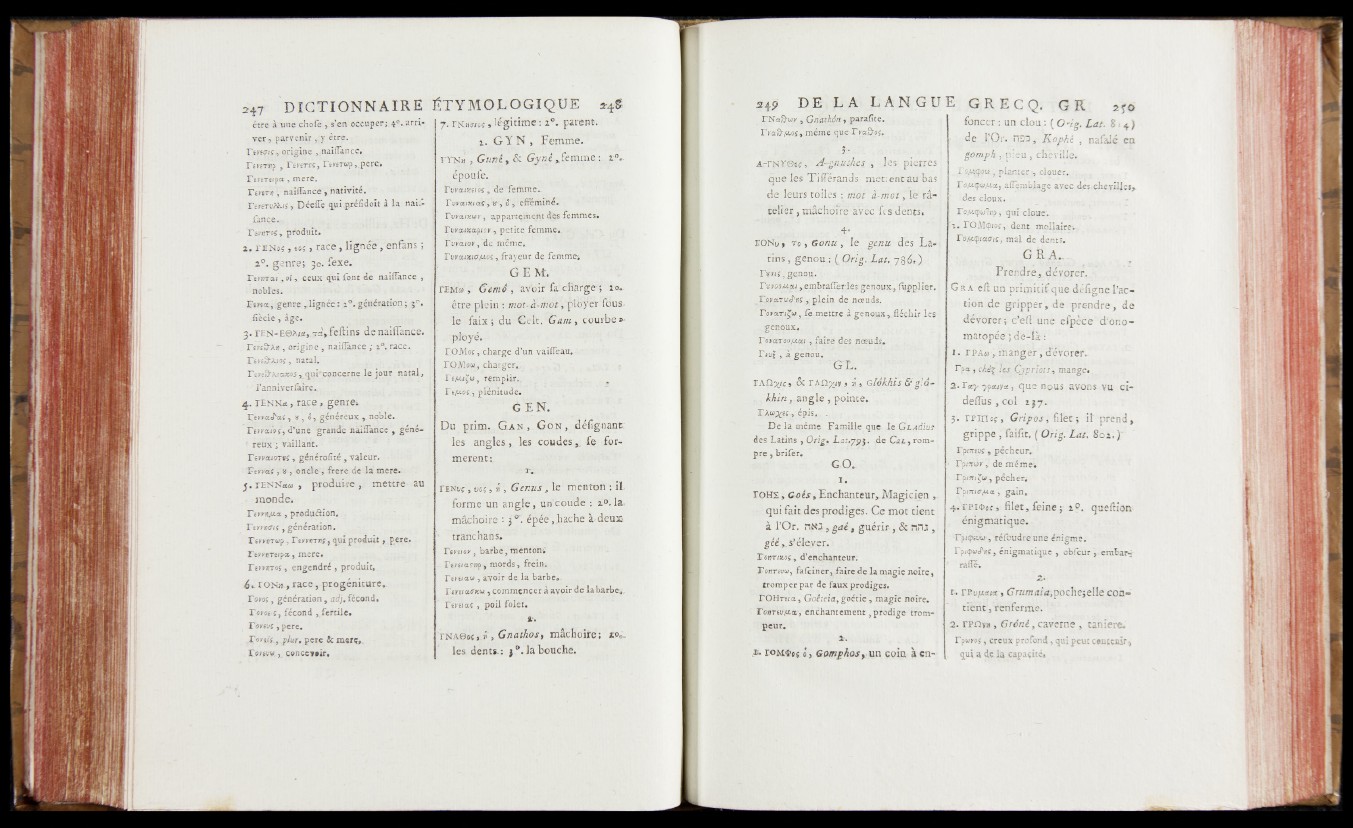 247 DICTIONNAIRE ÉTYMOLOGIQUE 248
être à une chose, s'en occuper; 4°. arri-
ver, parvenir, y être.
Γενεσις, origine, naissance.
Γενετηρ, Γενετης, Γενετωρ, pere.
Γενετειρα, mere.
Γενετη, naissance, nativité.
Γενετυλλις, Déesse qui présidoit à la nais-
sance.
Γενετος, produit.
2. ΓΕΝος, εος, race, lignée, enfans;
2°. genre; 3°. sexe.
Γενεται, οἱ, ceux qui sont de naissance,
nobles.
Γενεα, genre, lignée: 2°. génération; 3°.
siècle, âge.
3. ΓΕΝ-ΕΘλια, τα, festins de naissance.
Γενεθλη, origine, naissance; 2°. race.
Γενεθλιος, natal.
qui concerne le jour natal,
l'anniversaire.
4. ΓΕΝΝα, race, genre.
Γενναδας, ȣ, ὁ, généreux, noble.
Γενναιος, d'une grande naissance, géné-
reux; vaillant.
Γενναιοτης, générosité, valeur.
Γεννας, ȣ, oncle, frere de la mere.
5. ΓΕΝΝαω, produire, mettre au
monde.
Γεννημα, production.
Γεννησις, génération.
Γεννητωρ, Γεννητης, qui produit, pere.
Γεννητειρα, mere.
Γεννητος, engendré, produit.
6. ΓΟΝη, race, progéniture.
Γονος, génération, adj. fécond.
fécond, fertile.
Γονευς, pere.
Γονεις, plur. pere & mere.
Γονευω, concevoir.
7. ΓΝησιος, légitime: 2°. parent.
2. GYN, Femme.
ΓΥΝη, Guné, & Gyné, femme: 2°.
épouse.
Γυναικειος, de femme.
Γυναικιας, ȣ, ὁ, efféminé.
Γυναικων, appartement des femmes.
Γυναικαριον, petite femme.
Γυναιον, de même.
Γυναικισμος, frayeur de femme.
GEM.
ΓΕΜω, Gemó, avoir sa charge; 2°.
être plein: mot-à-mot, ployer sous
le faix; du Celt. Gam, courbe,
ployé.
ΓΟΜος, charge d'un vaisseau.
ΓΟΜοω, charger.
Γεμιζω, remplir.
Γεμος, plénitude.
GEN.
Du prim. GAN, GON, désignant
les angles, les coudes, se for-
merent:
1.
ΓΕΝυς, υος, ἡ, Genus, le menton: il
forme un angle, un coude: 2°. la
mâchoire: 3°. épée, hache à deux
tranchans.
Γενειον, barbe, menton.
mords, frein.
Γενειαω, avoir de la barbe.
Γενειασκω, commencer à avoir de la barbe.
Γενειας, poil folet.
2.
ΓΝΑΘος, ἡ, Gnathos, mâchoire; 2°.
les dents: 3°. la bouche.
249 DE LA LANGUE GRECQ. GR 250
ΓΝαθων, Gnathón, parasite.
même que Γναθος.
3.
Α-ΓΝΥΘες, A-gnuthes, les pierres
que les Tisserands mettent au bas
de leurs toiles: mot à-mot, le râ-
telier, mâchoire avec ses dents.
4.
ΓΟΝυ, το, Gonu, le genu des La-
tins, genou: (Orig. Lat. 786.)
genou.
embrasser les genoux, supplier.
Γονατωδης, plein de nœuds.
Γονατιζω, se mettre à genoux, fléchir les
genoux.
faire des nœuds.
Γνυξ, à genou.
GL.
ΓΛΩχις, & ΓΛΩχιν, ἡ, Glókhis & gló-
khin, angle, pointe.
Γλωχες, épis.
De la même Famille que le GLADius
des Latins, Orig. Lat. 793. de CAL, rom-
pre, briser.
GO.
1.
ΓΟΗΣ, Goés, Enchanteur, Magicien,
qui fait des prodiges. Ce mot tient
à l'Or. גאה, gaé, guérir, & גהה,
géé, s'élever.
Γοητικος, d'enchanteur.
Γοητευω, fasciner, faire de la magie noire,
tromper par de faux prodiges.
ΓΟΗτεια, Goéteia, goétie, magie noire.
Γοητευμα, enchantement, prodige trom-
peur.
2.
1. ΓΟΜΦος ὁ, Gomphos, un coin à en-
foncer: un clou: (Orig. Lat. 804)
de l'Or. Kophé, nasalé en
gomph, pieu, cheville.
planter, clouer.
Γομφωμα, assemblage avec des chevilles,
des cloux.
Γομφωτηρ, qui cloue.
2. ΓΟΜΦιος, dent mollaire.
Γομφιασις, mal de dents.
GRA.
Prendre, dévorer.
GRA est un primitif que désigne l'ac-
tion de gripper, de prendre, de
dévorer; c'est une espèce d'ono-
matopée; de-là:
1. ΓΡΑω, manger, dévorer.
Γρα, chez les Cypriots, mange.
2. que nous avons vu ci-
dessus, col 237.
3. ΓΡΙΠος, Gripos, filet; il prend,
grippe, saisit. (Orig. Lat. 802.)
Γριπευς, pécheur.
Γριπων, de même.
Γριπιζω, pécher.
Γριπισμα, gain.
4. ΓΡΙΦος, filet, seine; 2°. question
énigmatique.
Γριφευω, résoudre une énigme.
Γριφωδης, énigmatique, obscur, embar-
rassé.
2.
1. ΓΡυμαια, Grumaia, poche; elle con-
tient, renferme.
2. ΓΡΩνη, Gróné, caverne, taniere.
Γρωνος, creux profond, qui peut contenir,
qui a de la capacité.